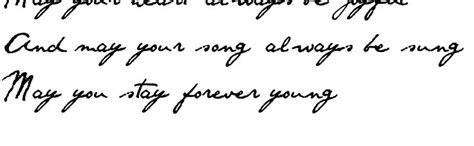 May your heart always be joyful
And may your song always be sung
May you stay forever young